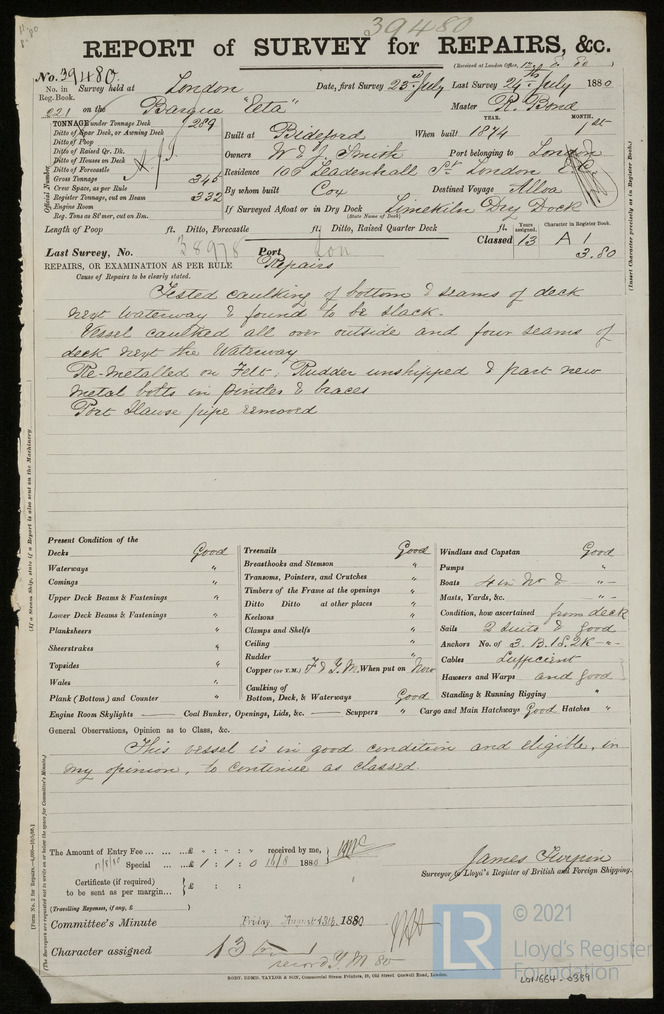 39480
REPORT of SURVEY for REPAIRS, &c.
(Received at London Office,
No. 39480.
No. in Reg. Book. 221
Survey held at London
Date, first Survey 23rd July Last Survey 24th July 1880
on the Barque "Eeta"
Master R. Bond
TONNAGE under Tonnage Deck 289
Ditto of Spar Deck, or Awning Deck
Ditto of Poop
Ditto of Raised Qr. Dk.
Ditto of Houses on Deck
Ditto of Forecastle
Gross Tonnage 345
Crew Space, as per Rule
Register Tonnage, cut on Beam 332
Engine Room
Reg. Tons as St'mer, cut on Bm.
Official Number
YEAR. MONTH.
Built at Bideford When built 1874 1st
Owners W & J. Smith Port belonging to London
Residence 103 Leadenhall St. London E.C.
By whom built Cox Destined Voyage Alloa
If Surveyed Afloat or in Dry Dock Limekiln Dry Dock
(State Name of Dock)
Length of Poop ft. Ditto, Forecastle ft. Ditto, Raised Quarter Deck ft.
Years assigned. Character in Register Book.
Classed 13 A 1
3.80
(Insert Character precisely as in Register Book.)
Last Survey, No. 38978 Port Lon
REPAIRS, OR EXAMINATION AS PER RULE Repairs
Cause of Repairs to be clearly stated.
Tested caulking of bottom & seams of deck
next waterway & found to be slack.
Vessel caulked all over outside and four seams of
deck next the Waterway
Re-metalled on Felt; Rudder unshipped & part new
metal bolts in pintles & braces
Port Hause pipe removd
(If a Steam Ship, state if a Report is also sent on the Machinery
Present Condition of the
Decks Good
Waterways "
Comings "
Upper Deck Beams & Fastenings "
Lower Deck Beams & Fastenings "
Planksheers "
Sheerstrakes "
Topsides "
Wales "
Plank (Bottom) and Counter "
Treenails Good
Breasthooks and Stemson "
Transoms, Pointers, and Crutches "
Timbers of the Frame at the openings "
Ditto Ditto at other places "
Keelsons "
Clamps and Shelfs "
Ceiling "
Rudder "
Copper (or Y.M.) F & Y.M. When put on Now
Caulking of
Bottom, Deck, & Waterways Good
Windlass and Capstan Good
Pumps "
Boats 4 in No. & "
Masts, Yards, &c. "
Condition, how ascertained from deck
Sails 2 Suits & good
Anchors No. of 3. B. 1 S. 2 K "
Cables Sufficient
Hawsers and Warps and good
Standing & Running Rigging "
Engine Room Skylights — Coal Bunker, Openings, Lids, &c. — Scuppers " Cargo and Main Hatchways Good Hatches "
General Observations, Opinion as to Class, &c.
This vessel is in good condition and eligible, in
my opinion, to continue as classed.
The Amount of Entry Fee ... ... ...£ " : " : " received by me,
11/8/80 Special ... ...£ 1 : 1 : 0 16/8 1880
Certificate (if required)
to be sent as per margin...
(Travelling Expenses, if any, £ )
James Turpin
Surveyor to Lloyd's Register of British and Foreign Shipping.
Committee's Minute Friday, August 13th, 1880
Character assigned 13
record Y M 80
ROBT. EDMD. TAYLOR & SON, Commercial Steam Printers, 19, Old Street Goswell Road, London.
LR
© 2021
Lloyd's Register
Foundation
LON664-0389